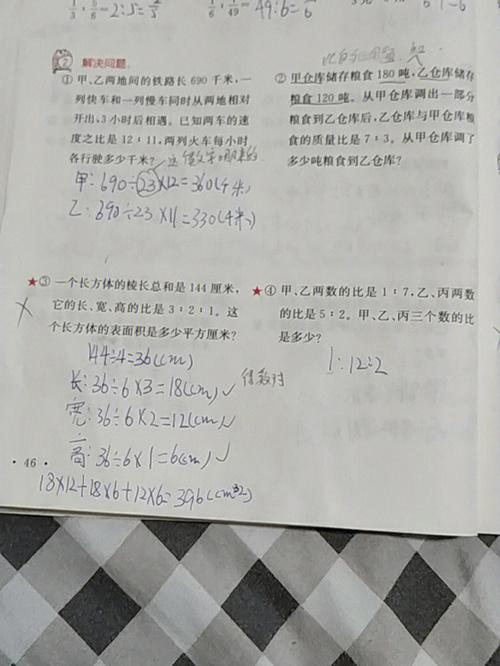 1/3 : 5/6 = 2:5 = 2/5
1/6 : 1/49 = 49:6 =
② 解决问题。
① 甲、乙两地间的铁路长 690 千米,一
列快车和一列慢车同时从两地相对
开出,3 小时后相遇。已知两车的速
度之比是 12∶11,两列火车每小时
各行驶多少千米?
甲: 690÷23×12=360(千米)
乙: 690÷23×11=330(千米)
② 甲仓库储存粮食 180 吨,乙仓库储存
粮食 120 吨。从甲仓库调出一部分
粮食到乙仓库后,乙仓库与甲仓库粮
食的质量比是 7∶3。从甲仓库调了
多少吨粮食到乙仓库?
★③ 一个长方体的棱长总和是 144 厘米,
它的长、宽、高的比是 3∶2∶1。这
个长方体的表面积是多少平方厘米?
144÷4=36(cm)
长: 36÷6×3=18(cm)
得数对
宽: 36÷6×2=12(cm)
高: 36÷6×1=6(cm)
18×12+18×6+12×6=396(cm²)
★④ 甲、乙两数的比是 1∶7,乙、丙两数
的比是 5∶2。甲、乙、丙三个数的比
是多少?
1:12:2
· 46 ·